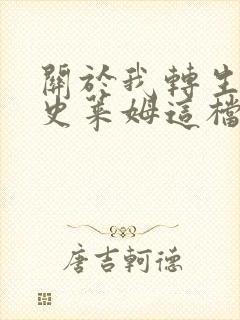 關於我轉生
史萊姆這檔
唐吉軻德